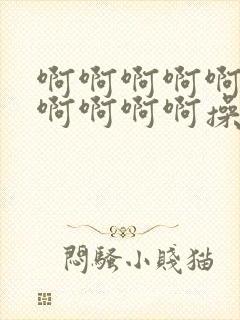 啊啊啊啊啊
啊啊啊啊操
悶騷小賤猫